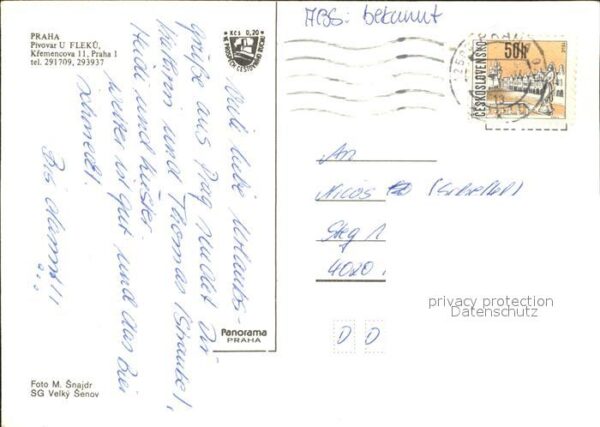 PRAHA
Pivovar U FLEKŮ,
Křemencova 11, Praha 1
tel. 291709, 293937
Kčs 0,20
ABS: bekannt
50h
ČESKOSLOVENSKO
Viele liebe Urlaubs-
grüße aus Prag sendet Dir
Kathrin und Thomas
Heidi und
Wetter ist gut und das Bier
schmeckt!
Bis demn!!
An
Steg 1
4020
D D
privacy protection
Datenschutz
Panorama
PRAHA
Foto M. Šnajdr
SG Velký Šenov